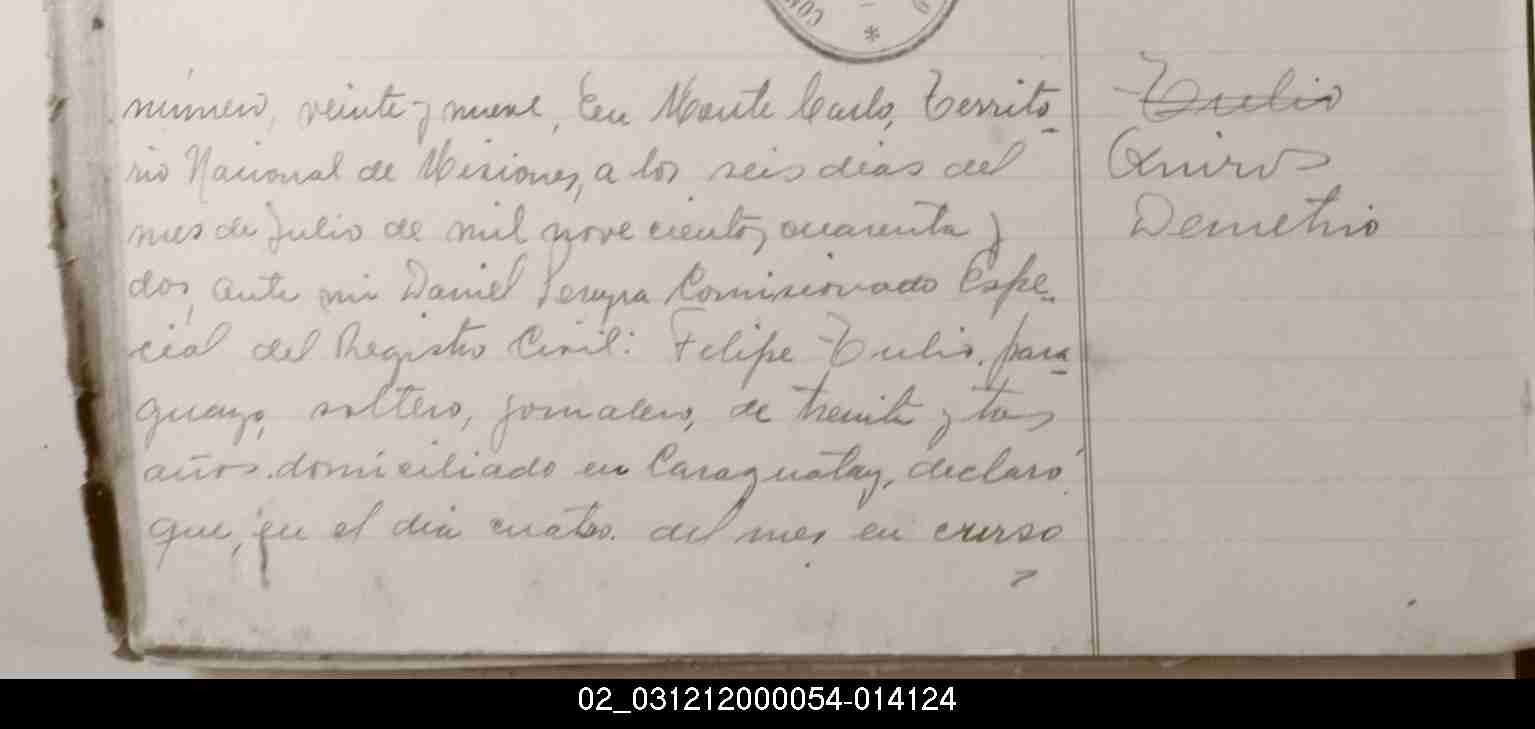 CON
número, veinte y nueve, En Monte Carlo, Territo-
rio Nacional de Misiones, a los seis dias del
mes de Julio de mil novecientos cuarenta y
dos, ante mi Daniel Pereyra Comisionado Espe-
cial del Registro Civil: Felipe Tulio, para-
guayo, soltero, jornalero, de treinta y tres
años domiciliado en Caraguatay, declaró
que, en el dia cuatro del mes en curso
Tulio
Quiros
Demetrio
02_031212000054-014124